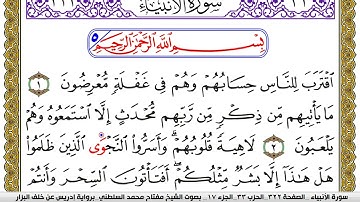 سورة الأنبياء
بِسْمِ اللَّهِ الرَّحْمَٰنِ الرَّحِيمِ
اقْتَرَبَ لِلنَّاسِ حِسَابُهُمْ وَهُمْ فِي غَفْلَةٍ مُّعْرِضُونَ ١
مَا يَأْتِيهِم مِّن ذِكْرٍ مِّن رَّبِّهِم مُّحْدَثٍ إِلَّا اسْتَمَعُوهُ وَهُمْ
يَلْعَبُونَ ٢ لَاهِيَةً قُلُوبُهُمْ وَأَسَرُّوا النَّجْوَى الَّذِينَ ظَلَمُوا
هَلْ هَٰذَا إِلَّا بَشَرٌ مِّثْلُكُمْ أَفَتَأْتُونَ السِّحْرَ وَأَنتُمْ
سورة الأنبياء . الصفحة ٣٢٢ . الحزب ٣٣ . الجزء ١٧ . بصوت الشيخ مفتاح محمد السلطني . برواية إدريس عن خلف البزار